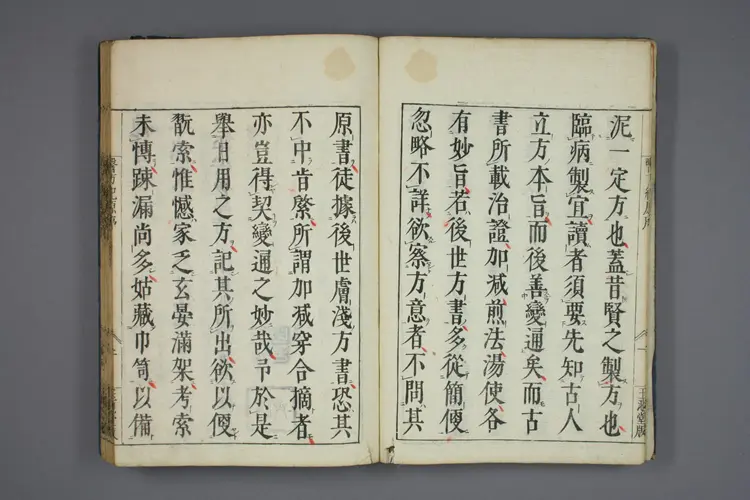 泥一定方也蓋昔賢之製方也
臨病製宜讀者須要先知古人
立方本旨而後善變通矣而古
書所載治證加减煎法湯使各
有妙旨若後世方書多從簡便
忽略不詳欲察方意者不問其
原書徒據後世膚淺方書恐其
不中肯綮所謂加减穿合摘者
亦豈得契變通之妙哉予於是
舉日用之方記其所出欲以便
翫索惟憾家乏玄晏滿架考索
未博踈漏尚多姑藏巾笥以備